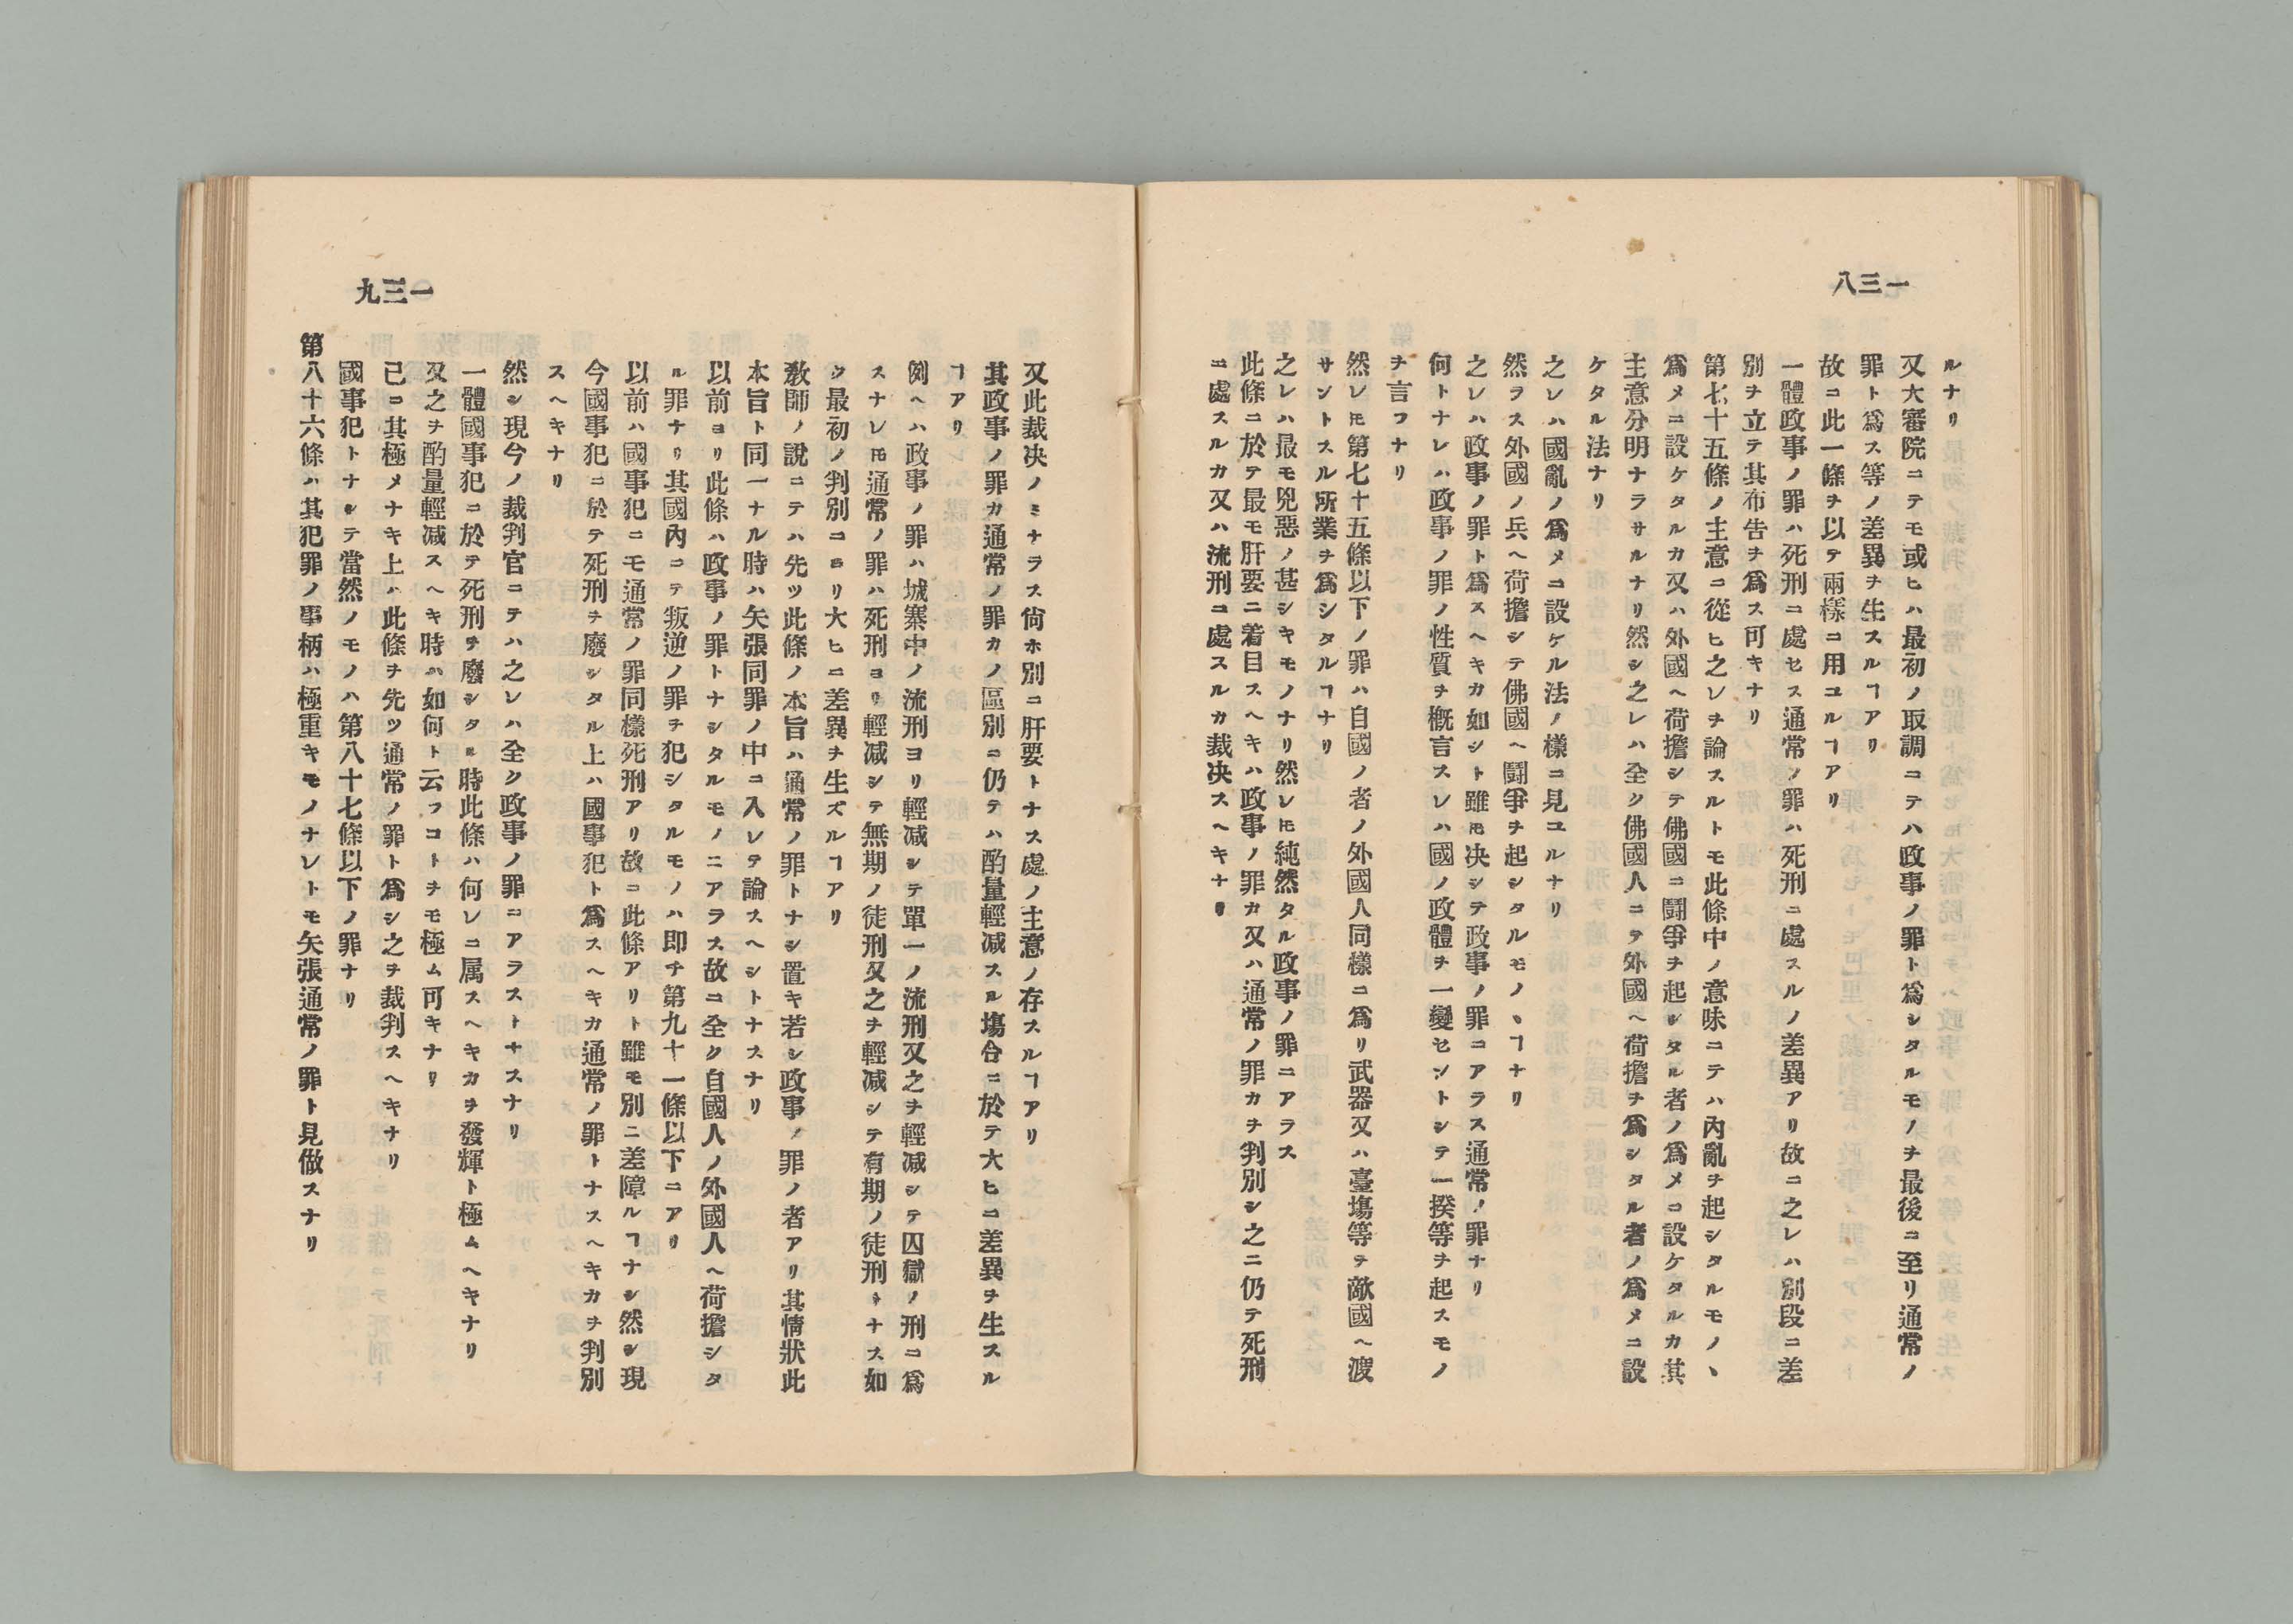 一三八
ルナリ
又大審院ニテモ或ヒハ最初ノ取調ニテハ政事ノ罪ト爲シタルモノヲ最後ニ至リ通常ノ
罪ト爲ス等ノ差異ヲ生スルヿアリ
故ニ此一條ヲ以テ兩樣ニ用ユルヿアリ
一體政事ノ罪ハ死刑ニ處セス通常ノ罪ハ死刑ニ處スルノ差異アリ故ニ之レハ別段ニ差
別ヲ立テ其布告ヲ爲ス可キナリ
第七十五條ノ主意ニ從ヒ之レヲ論スルトモ此條中ノ意味ニテハ內亂ヲ起シタルモノヽ
爲メニ設ケタルカ又ハ外國ヘ荷擔シテ佛國ニ鬪爭ヲ起シタル者ノ爲メニ設ケタルカ其
主意分明ナラサルナリ然シ之レハ全ク佛國人ニテ外國ヘ荷擔ヲ爲シタル者ノ爲メニ設
ケタル法ナリ
之レハ國亂ノ爲メニ設ケル法ノ樣ニ見ユルナリ
然ラス外國ノ兵ヘ荷擔シテ佛國ヘ鬪爭ヲ起シタルモノヽヿナリ
之レハ政事ノ罪ト爲スヘキカ如シト雖𪜈决シテ政事ノ罪ニアラス通常ノ罪ナリ
何トナレハ政事ノ罪ノ性質ヲ槪言スレハ國ノ政體ヲ一變セントシテ一揆等ヲ起スモノ
ヲ言フナリ
然レ𪜈第七十五條以下ノ罪ハ自國ノ者ノ外國人同樣ニ爲リ武器又ハ臺塲等ヲ敵國ヘ渡
サントスル所業ヲ爲シタルヿナリ
之レハ最モ兇惡ノ甚シキモノナリ然レ𪜈純然タル政事ノ罪ニアラス
此條ニ於テ最モ肝要ニ着目スヘキハ政事ノ罪カ又ハ通常ノ罪カヲ判別シ之ニ仍テ死刑
ニ處スルカ又ハ流刑ニ處スルカ裁决スヘキナリ
一三九
又此裁决ノミナラス尙ホ別ニ肝要トナス處ノ主意ノ存スルヿアリ
其政事ノ罪カ通常ノ罪カノ區別ニ仍テハ酌量輕减スル塲合ニ於テ大ヒニ差異ヲ生スル
ヿアリ
例ヘハ政事ノ罪ハ城寨中ノ流刑ヨリ輕减シテ單一ノ流刑又之ヲ輕减シテ囚獄ノ刑ニ爲
スナレ𪜈通常ノ罪ハ死刑ヨリ輕减シテ無期ノ徒刑又之ヲ輕减シテ有期ノ徒刑トナス如
ク最初ノ判別ニヨリ大ヒニ差異ヲ生ズルヿアリ
敎師ノ說ニテハ先ツ此條ノ本旨ハ通常ノ罪トナシ置キ若シ政事ノ罪ノ者アリ其情狀此
本旨ト同一ナル時ハ矢張同罪ノ中ニ入レテ論スヘシトナスナリ
以前ヨリ此條ハ政事ノ罪トナシタルモノニアラス故ニ全ク自國人ノ外國人ヘ荷擔シタ
ル罪ナリ其國內ニテ叛逆ノ罪ヲ犯シタルモノハ卽チ第九十一條以下ニアリ
以前ハ國事犯ニモ通常ノ罪同樣死刑アリ故ニ此條アリト雖モ別ニ差障ルヿナシ然シ現
今國事犯ニ於テ死刑ヲ廢シタル上ハ國事犯ト爲スヘキカ通常ノ罪トナスヘキカヲ判別
スヘキナリ
然シ現今ノ裁判官ニテハ之レハ全ク政事ノ罪ニアラストナスナリ
一體國事犯ニ於テ死刑ヲ廢シタル時此條ハ何レニ属スヘキカヲ發輝ト極ムヘキナリ
又之ヲ酌量輕减スヘキ時ハ如何ト云フコトヲモ極ム可キナリ
已ニ其極メナキ上ハ此條ヲ先ツ通常ノ罪ト爲シ之ヲ裁判スヘキナリ
國事犯トナシテ當然ノモノハ第八十七條以下ノ罪ナリ
第八十六條ハ其犯罪ノ事柄ハ極重キモノナレトモ矢張通常ノ罪ト見做スナリ